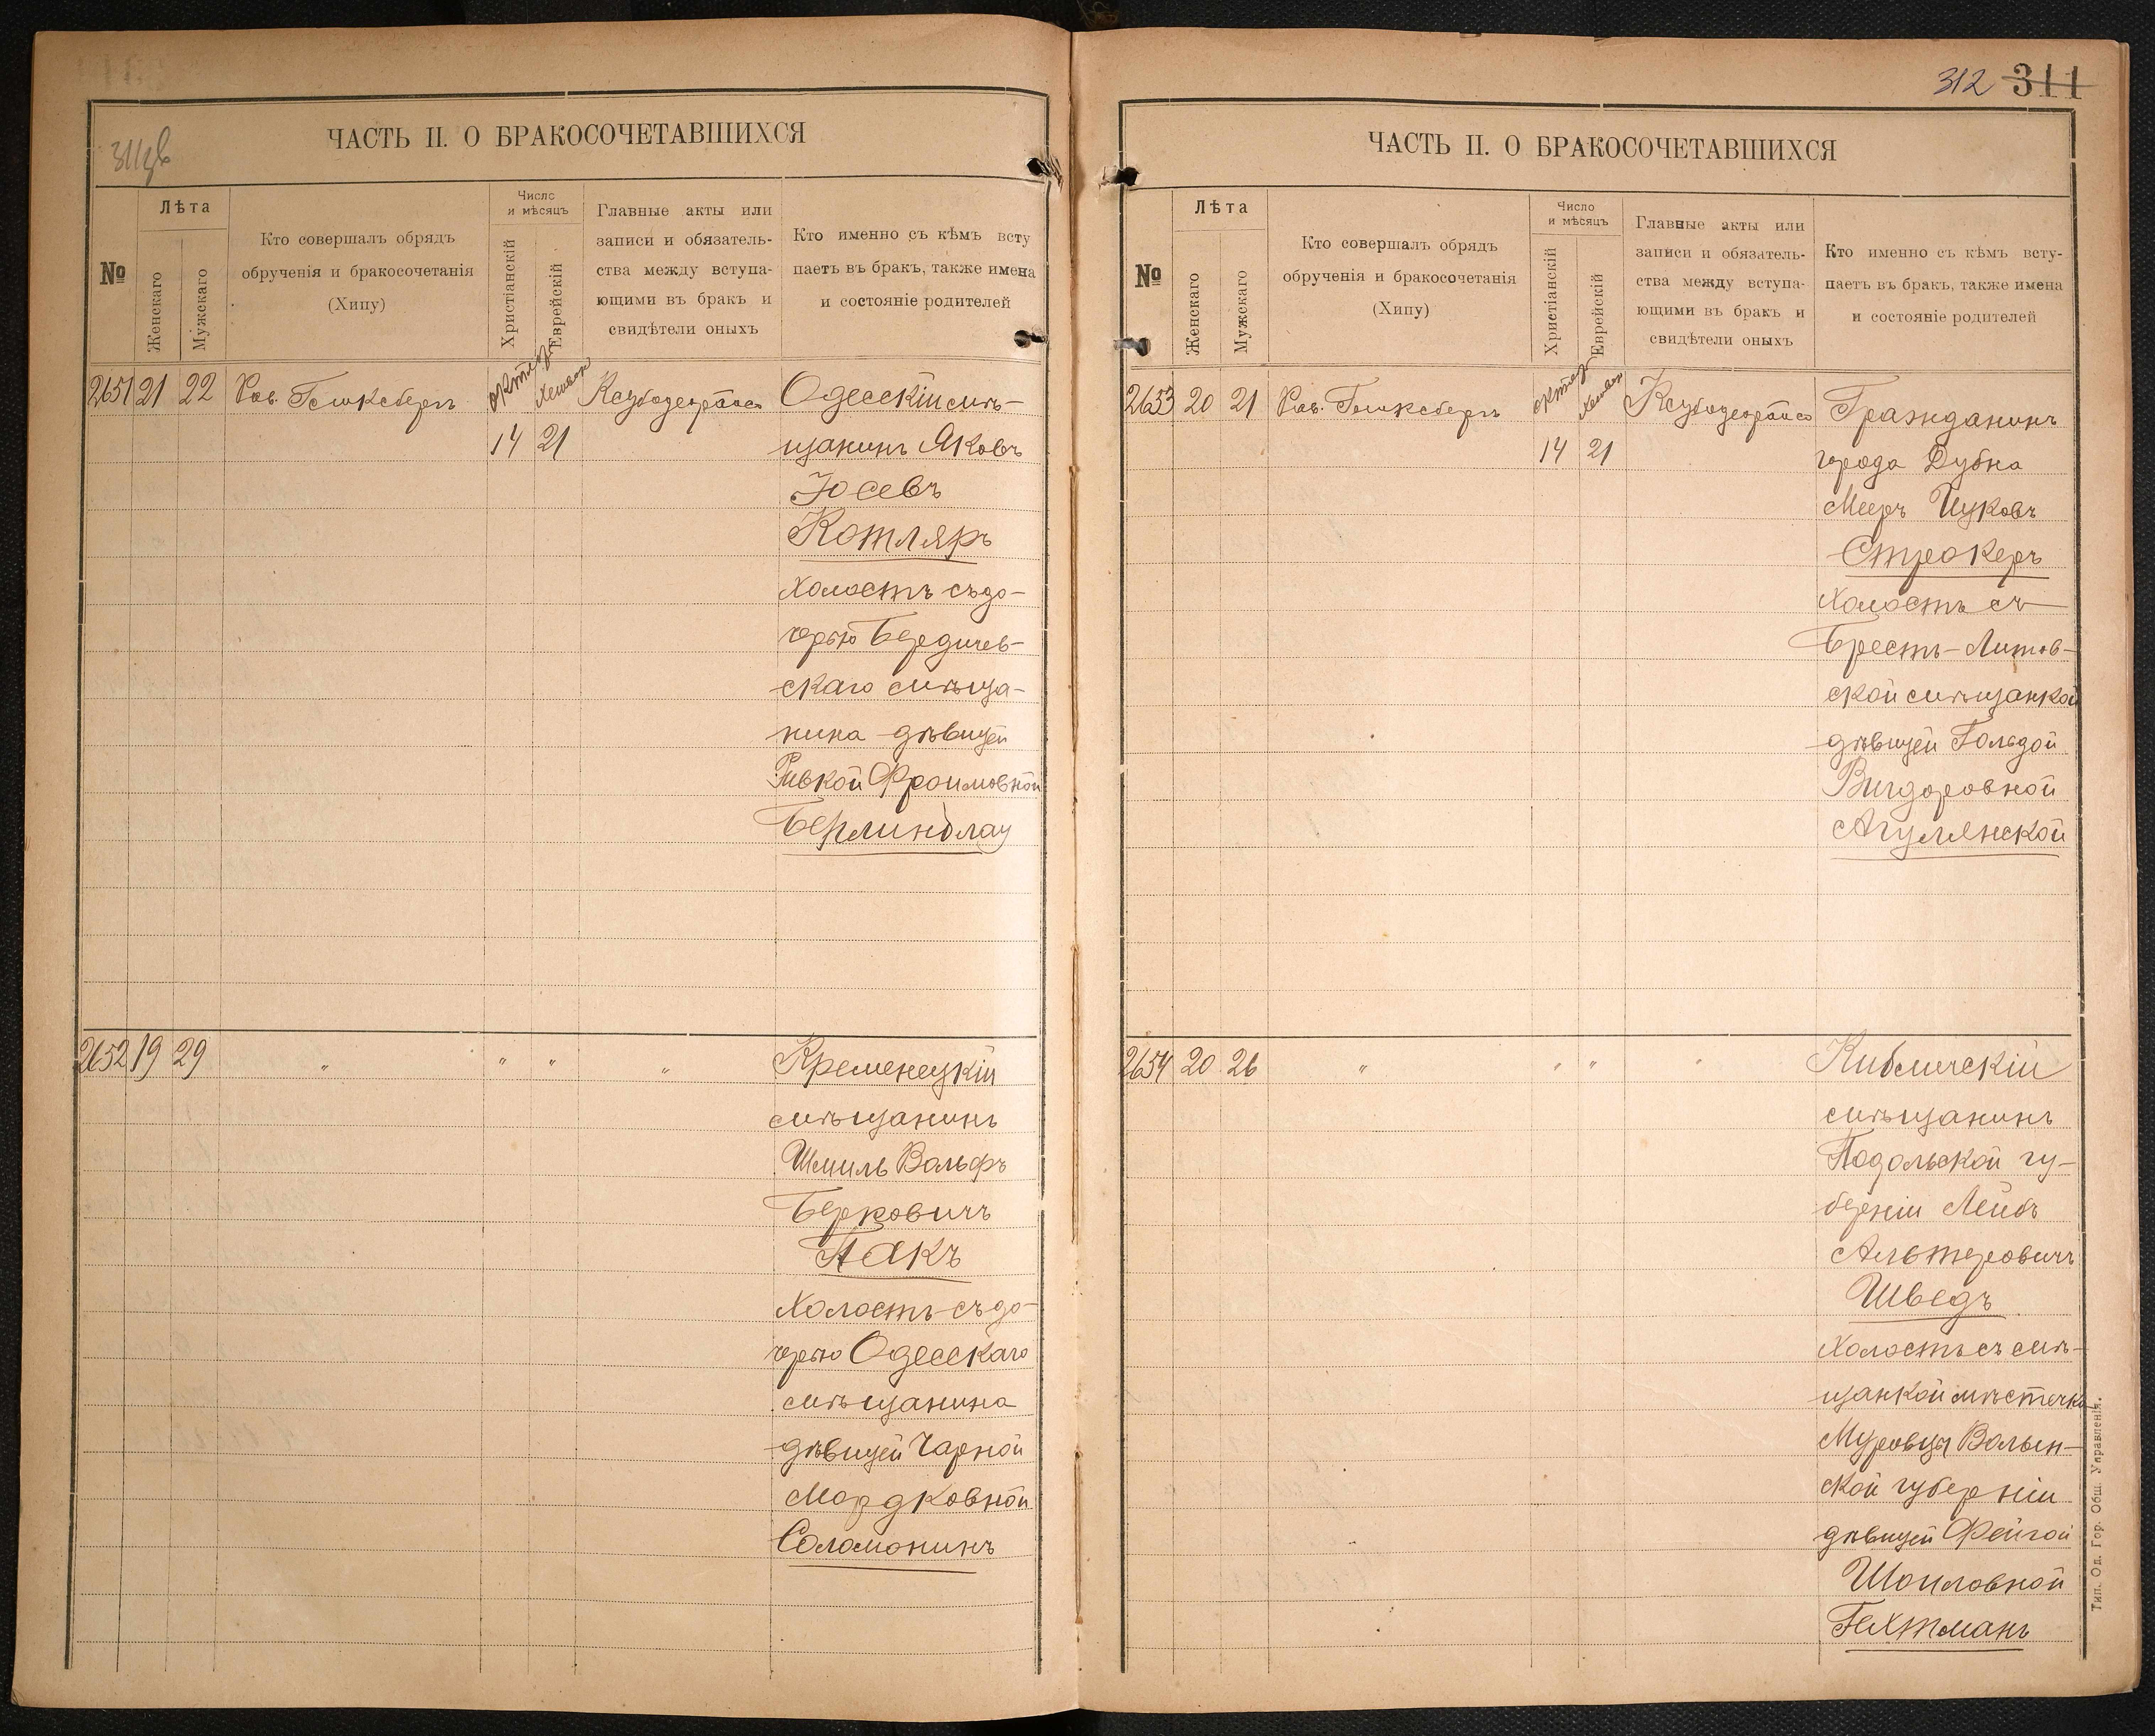 311об
ЧАСТЬ II. О БРАКОСОЧЕТАВШИХСЯ
№
Лѣта
Женскаго
Мужскаго
Кто совершалъ обрядъ
обрученія и бракосочетанія
(Хипу)
Число
и мѣсяцъ
Христіанскій
Еврейскій
Главные акты или
записи и обязатель-
ства между вступа-
ющими въ бракъ и
свидѣтели оныхъ
Кто именно съ кѣмъ всту
паетъ въ бракъ, также имена
и состояніе родителей
2651 21 22 Рав. октяб Хешван Одесскій мѣ-
14 21 щанинъ Яковъ
Іосевъ
Котляръ
холостъ съ до-
черью Бердичев-
скаго мѣща-
нина дѣвицей
Ривкой Фроимовной
Берлинблау
2652 19 29 " " " " Кременецкій
мѣщанинъ
Шмиль Вольфъ
Берковичъ
Пакъ
холостъ съ до-
черью Одесскаго
мѣщанина
дѣвицей Чарной
Мордковной
Соломонинъ
312 311
ЧАСТЬ II. О БРАКОСОЧЕТАВШИХСЯ
№
Лѣта
Женскаго
Мужскаго
Кто совершалъ обрядъ
обрученія и бракосочетанія
(Хипу)
Число
и мѣсяцъ
Христіанскій
Еврейскій
Главные акты или
записи и обязатель-
ства между вступа-
ющими въ бракъ и
свидѣтели оныхъ
Кто именно съ кѣмъ всту-
паетъ въ бракъ, также имена
и состояніе родителей
2653 20 21 Рав. октяб Хешван Гражданинъ
14 21 города Дубна
Мееръ Ицковъ
Строкеръ
холостъ съ
Брестъ-Литов-
ской мѣщанкой
дѣвицей Гольдой
Вигдоровной
Агулянской
2654 20 26 " " " " Кибличскій
мѣщанинъ
Подольской гу-
берніи Лейбъ
Альтеровичъ
Шведъ
холостъ съ мѣ-
щанкой мѣстечка
Муровцы Волын-
ской губерніи
дѣвицей Фейгой
Шоиловной
Гехтманъ
Тип. Од. Гор. Общ. Управленія.